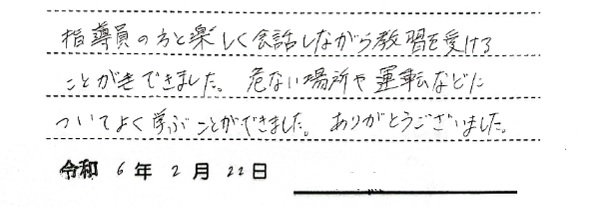 指導員の方と楽しく会話しながら教習を受ける
ことができました。危ない場所や運転などに
ついてよく学ぶことができました。ありがとうございました。
令和 6 年 2 月 22 日